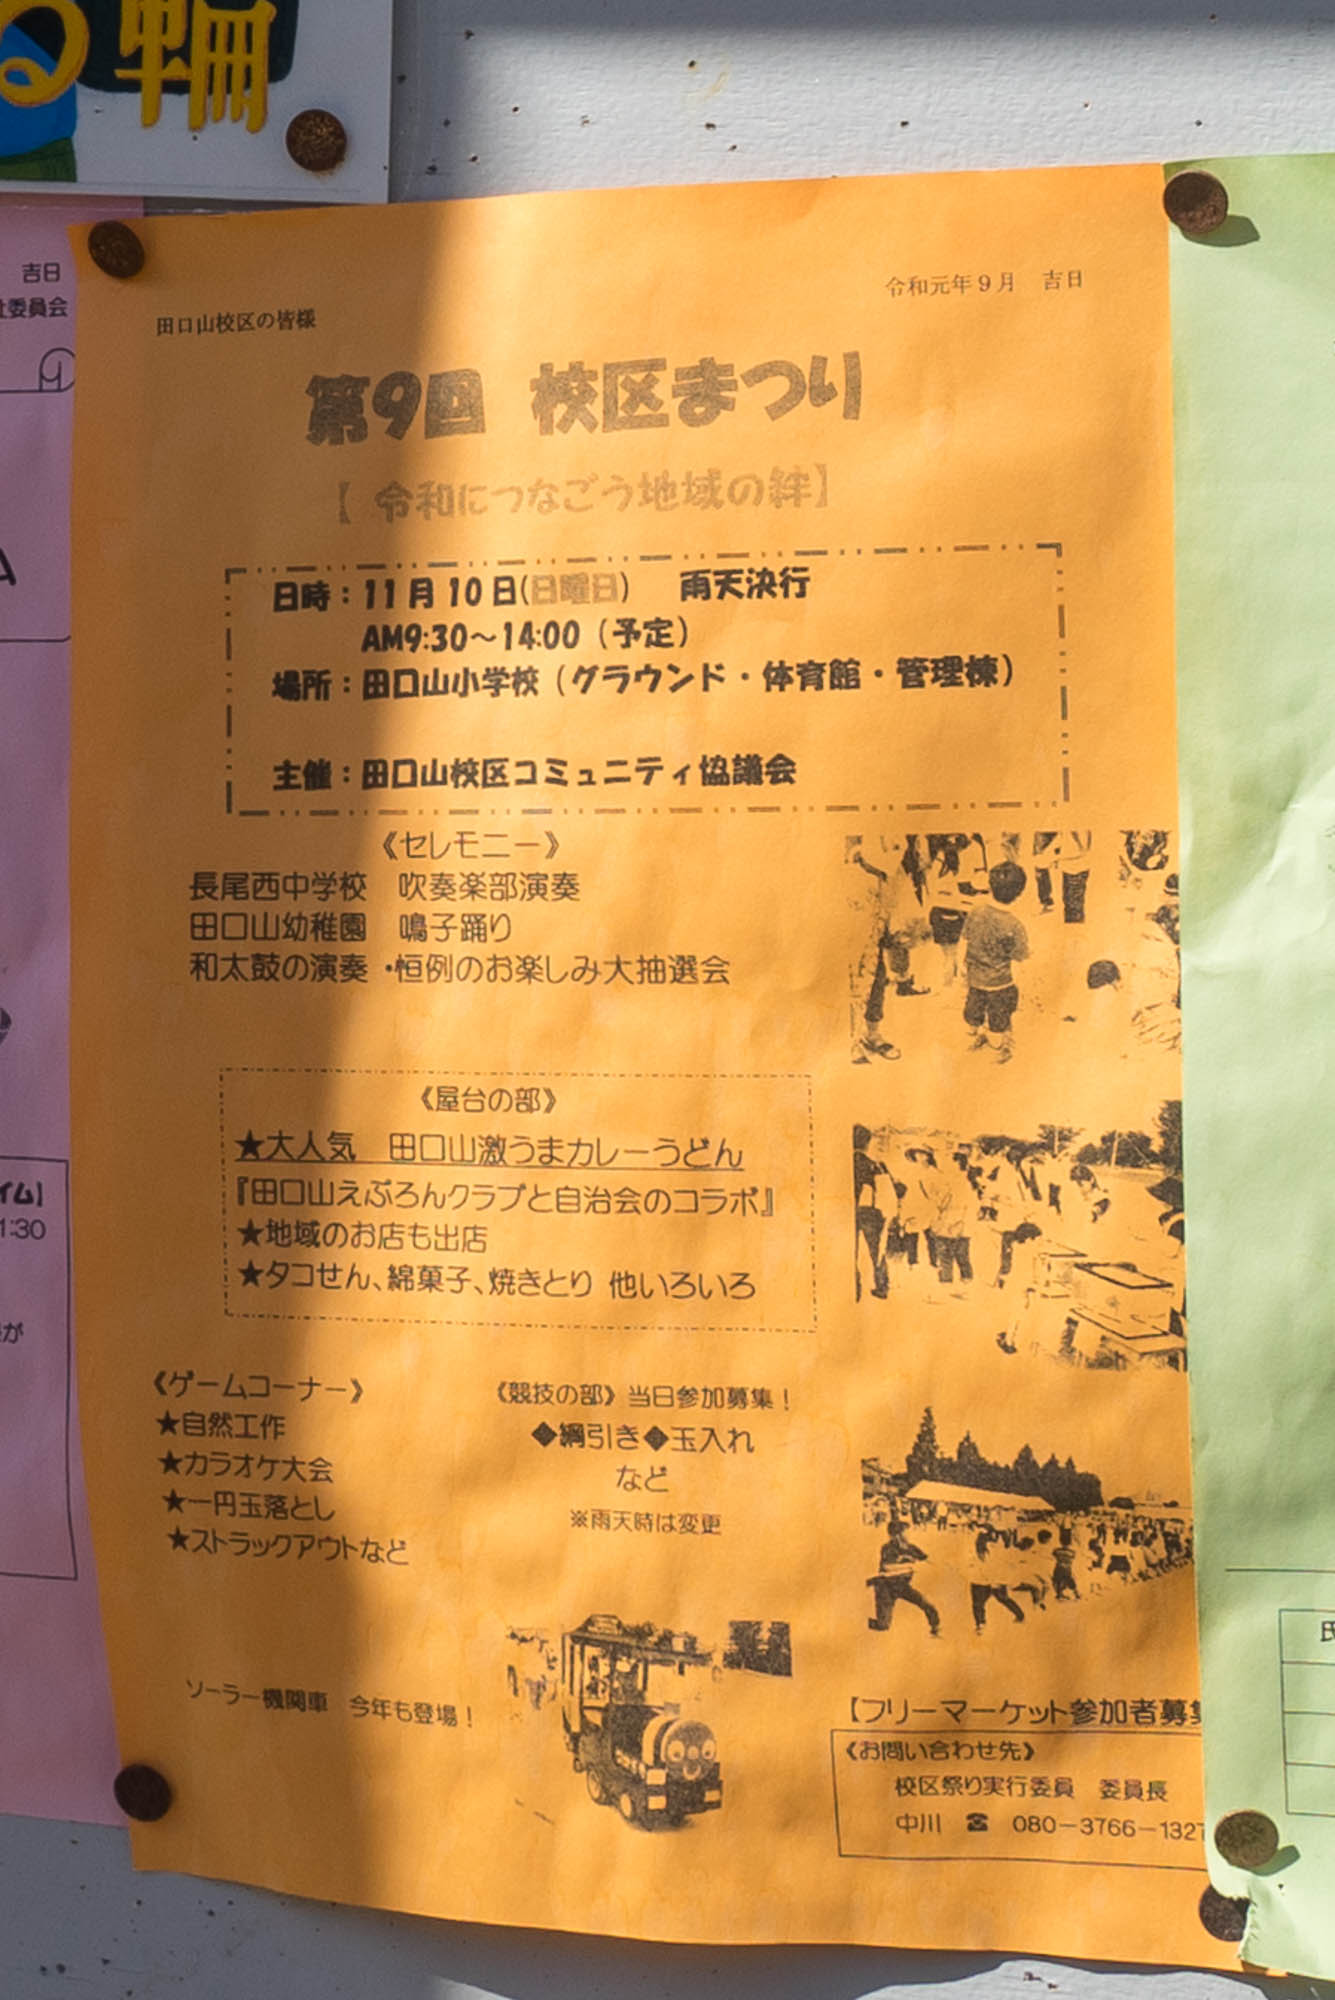 る輪
吉日
委員会
イム】
1:30
が
令和元年9月　吉日
田口山校区の皆様
第9回　校区まつり
【 令和につなごう地域の絆】
日時：11月10日(日曜日)　雨天決行
AM9:30～14:00（予定）
場所：田口山小学校（グラウンド・体育館・管理棟）
主催：田口山校区コミュニティ協議会
《セレモニー》
長尾西中学校　吹奏楽部演奏
田口山幼稚園　鳴子踊り
和太鼓の演奏・恒例のお楽しみ大抽選会
《屋台の部》
★大人気　田口山激うまカレーうどん
『田口山えぷろんクラブと自治会のコラボ』
★地域のお店も出店
★タコせん、綿菓子、焼きとり 他いろいろ
《ゲームコーナー》
★自然工作
★カラオケ大会
★一円玉落とし
★ストラックアウトなど
《競技の部》当日参加募集！
◆綱引き◆玉入れ
など
※雨天時は変更
ソーラー機関車　今年も登場！
【フリーマーケット参加者募集
《お問い合わせ先》
校区祭り実行委員　委員長
中川　☎　080－3766－1327